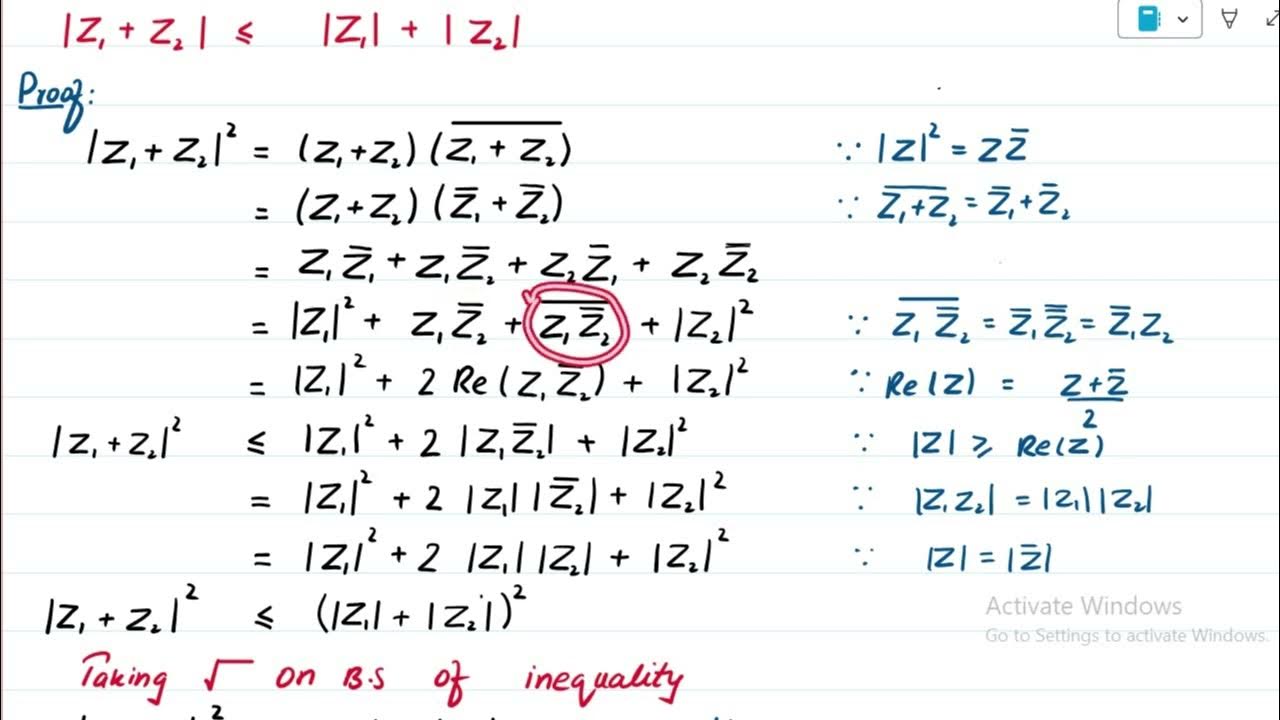 |Z₁ + Z₂| ≤ |Z₁| + |Z₂|
Proof:
|Z₁ + Z₂|² = (Z₁+Z₂) (\overline{Z₁ + Z₂}) ∵ |Z|² = Z Z̄
= (Z₁+Z₂) (Z̄₁ + Z̄₂) ∵ \overline{Z₁+Z₂} = Z̄₁+Z̄₂
= Z₁Z̄₁ + Z₁Z̄₂ + Z₂Z̄₁ + Z₂Z̄₂
= |Z₁|² + Z₁Z̄₂ + \overline{Z₁Z̄₂} + |Z₂|² ∵ \overline{Z₁Z̄₂} = Z̄₁\overline{Z̄₂} = Z̄₁Z₂
= |Z₁|² + 2 Re(Z₁Z̄₂) + |Z₂|² ∵ Re(Z) = \frac{Z+Z̄}{2}
|Z₁+Z₂|² ≤ |Z₁|² + 2 |Z₁Z̄₂| + |Z₂|² ∵ |Z| ⩾ Re(Z)
= |Z₁|² + 2 |Z₁| |Z̄₂| + |Z₂|² ∵ |Z₁Z₂| = |Z₁||Z₂|
= |Z₁|² + 2 |Z₁| |Z₂| + |Z₂|² ∵ |Z| = |Z̄|
|Z₁ + Z₂|² ≤ (|Z₁| + |Z₂|)²
Activate Windows
Go to Settings to activate Windows.
Taking √ on B.S of inequality